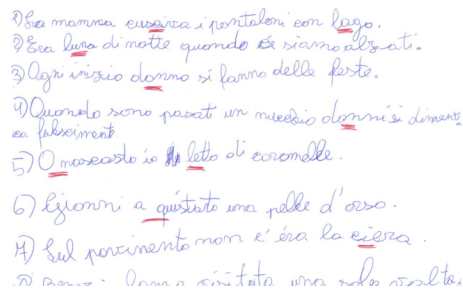 1) La mamma cusciva i pantaloni con lago.
2) Era luna di notte quando ci siamo alzati.
3) Ogni inizio danno si fanno delle feste.
4) Quando sono pasat un mucchio danni si diment
ca
5) O nascasto io letto di caramelle.
6) Gionni a quistato una pelle d'orso.
7) Sul pavimento non c'éra la ciera.
una sola volta.